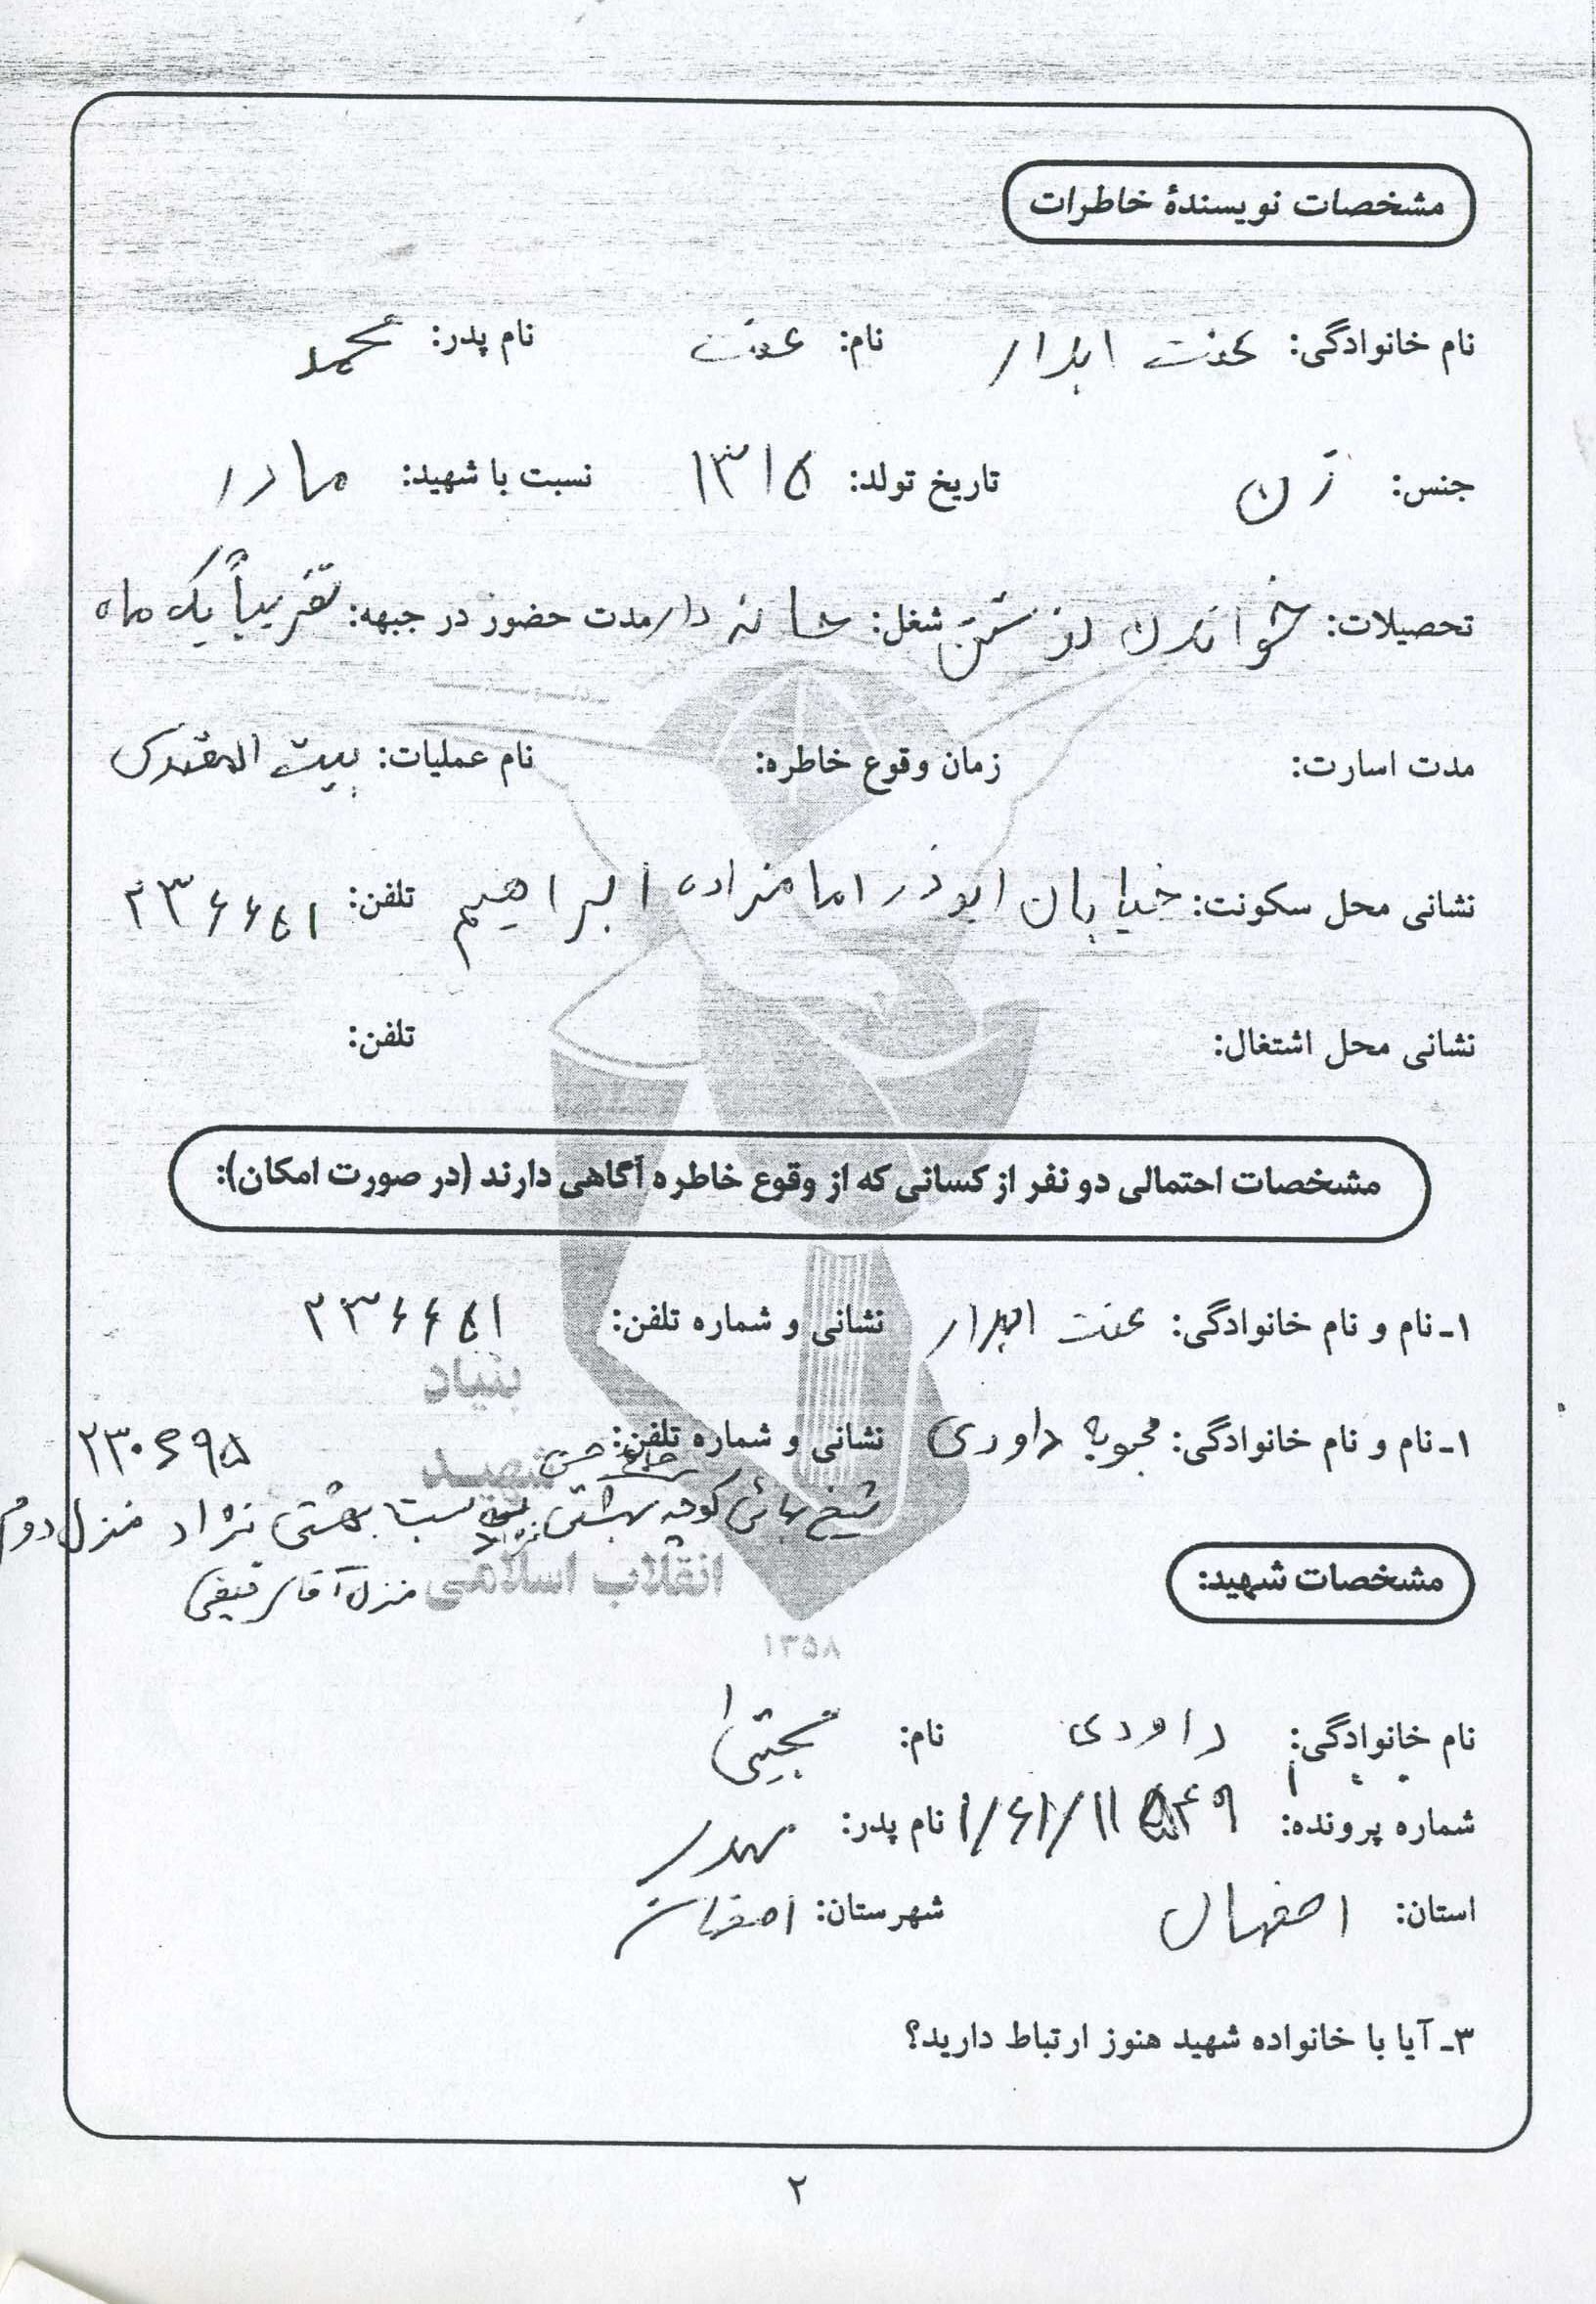 مشخصات نویسندهٔ خاطرات
نام خانوادگی: عفت ابرار نام: عفت نام پدر: محمد
جنس: زن تاریخ تولد: ۱۳۱۵ نسبت با شهید: مادر
تحصیلات: خواندن نوشتن شغل: خانه دار مدت حضور در جبهه: تقریباً یک ماه
مدت اسارت: زمان وقوع خاطره: نام عملیات: بیت المقدس
نشانی محل سکونت: خیابان ابوذر امامزاده ابراهیم تلفن: ۲۳۶۶۵۱
نشانی محل اشتغال: تلفن:
مشخصات احتمالی دو نفر از کسانی که از وقوع خاطره آگاهی دارند (در صورت امکان):
۱ـ نام و نام خانوادگی: عفت ابرار نشانی و شماره تلفن: ۲۳۶۶۵۱
بنیاد
۱ـ نام و نام خانوادگی: محبوبه داوری نشانی و شماره تلفن: ۲۳۰۶۹۵
شهید
حاج حسن
شیخ بهائی کوچه بهشتی نژاد بن بست بهشتی نژاد منزل دوم
انقلاب اسلامی
منزل آقای رفیعی
مشخصات شهید:
۱۳۵۸
نام خانوادگی: داودی نام: مجتبی
شماره پرونده: ۱/۶۱/۱۱۵۴۹ نام پدر:
استان: اصفهان شهرستان: اصفهان
۳ـ آیا با خانواده شهید هنوز ارتباط دارید؟
۲